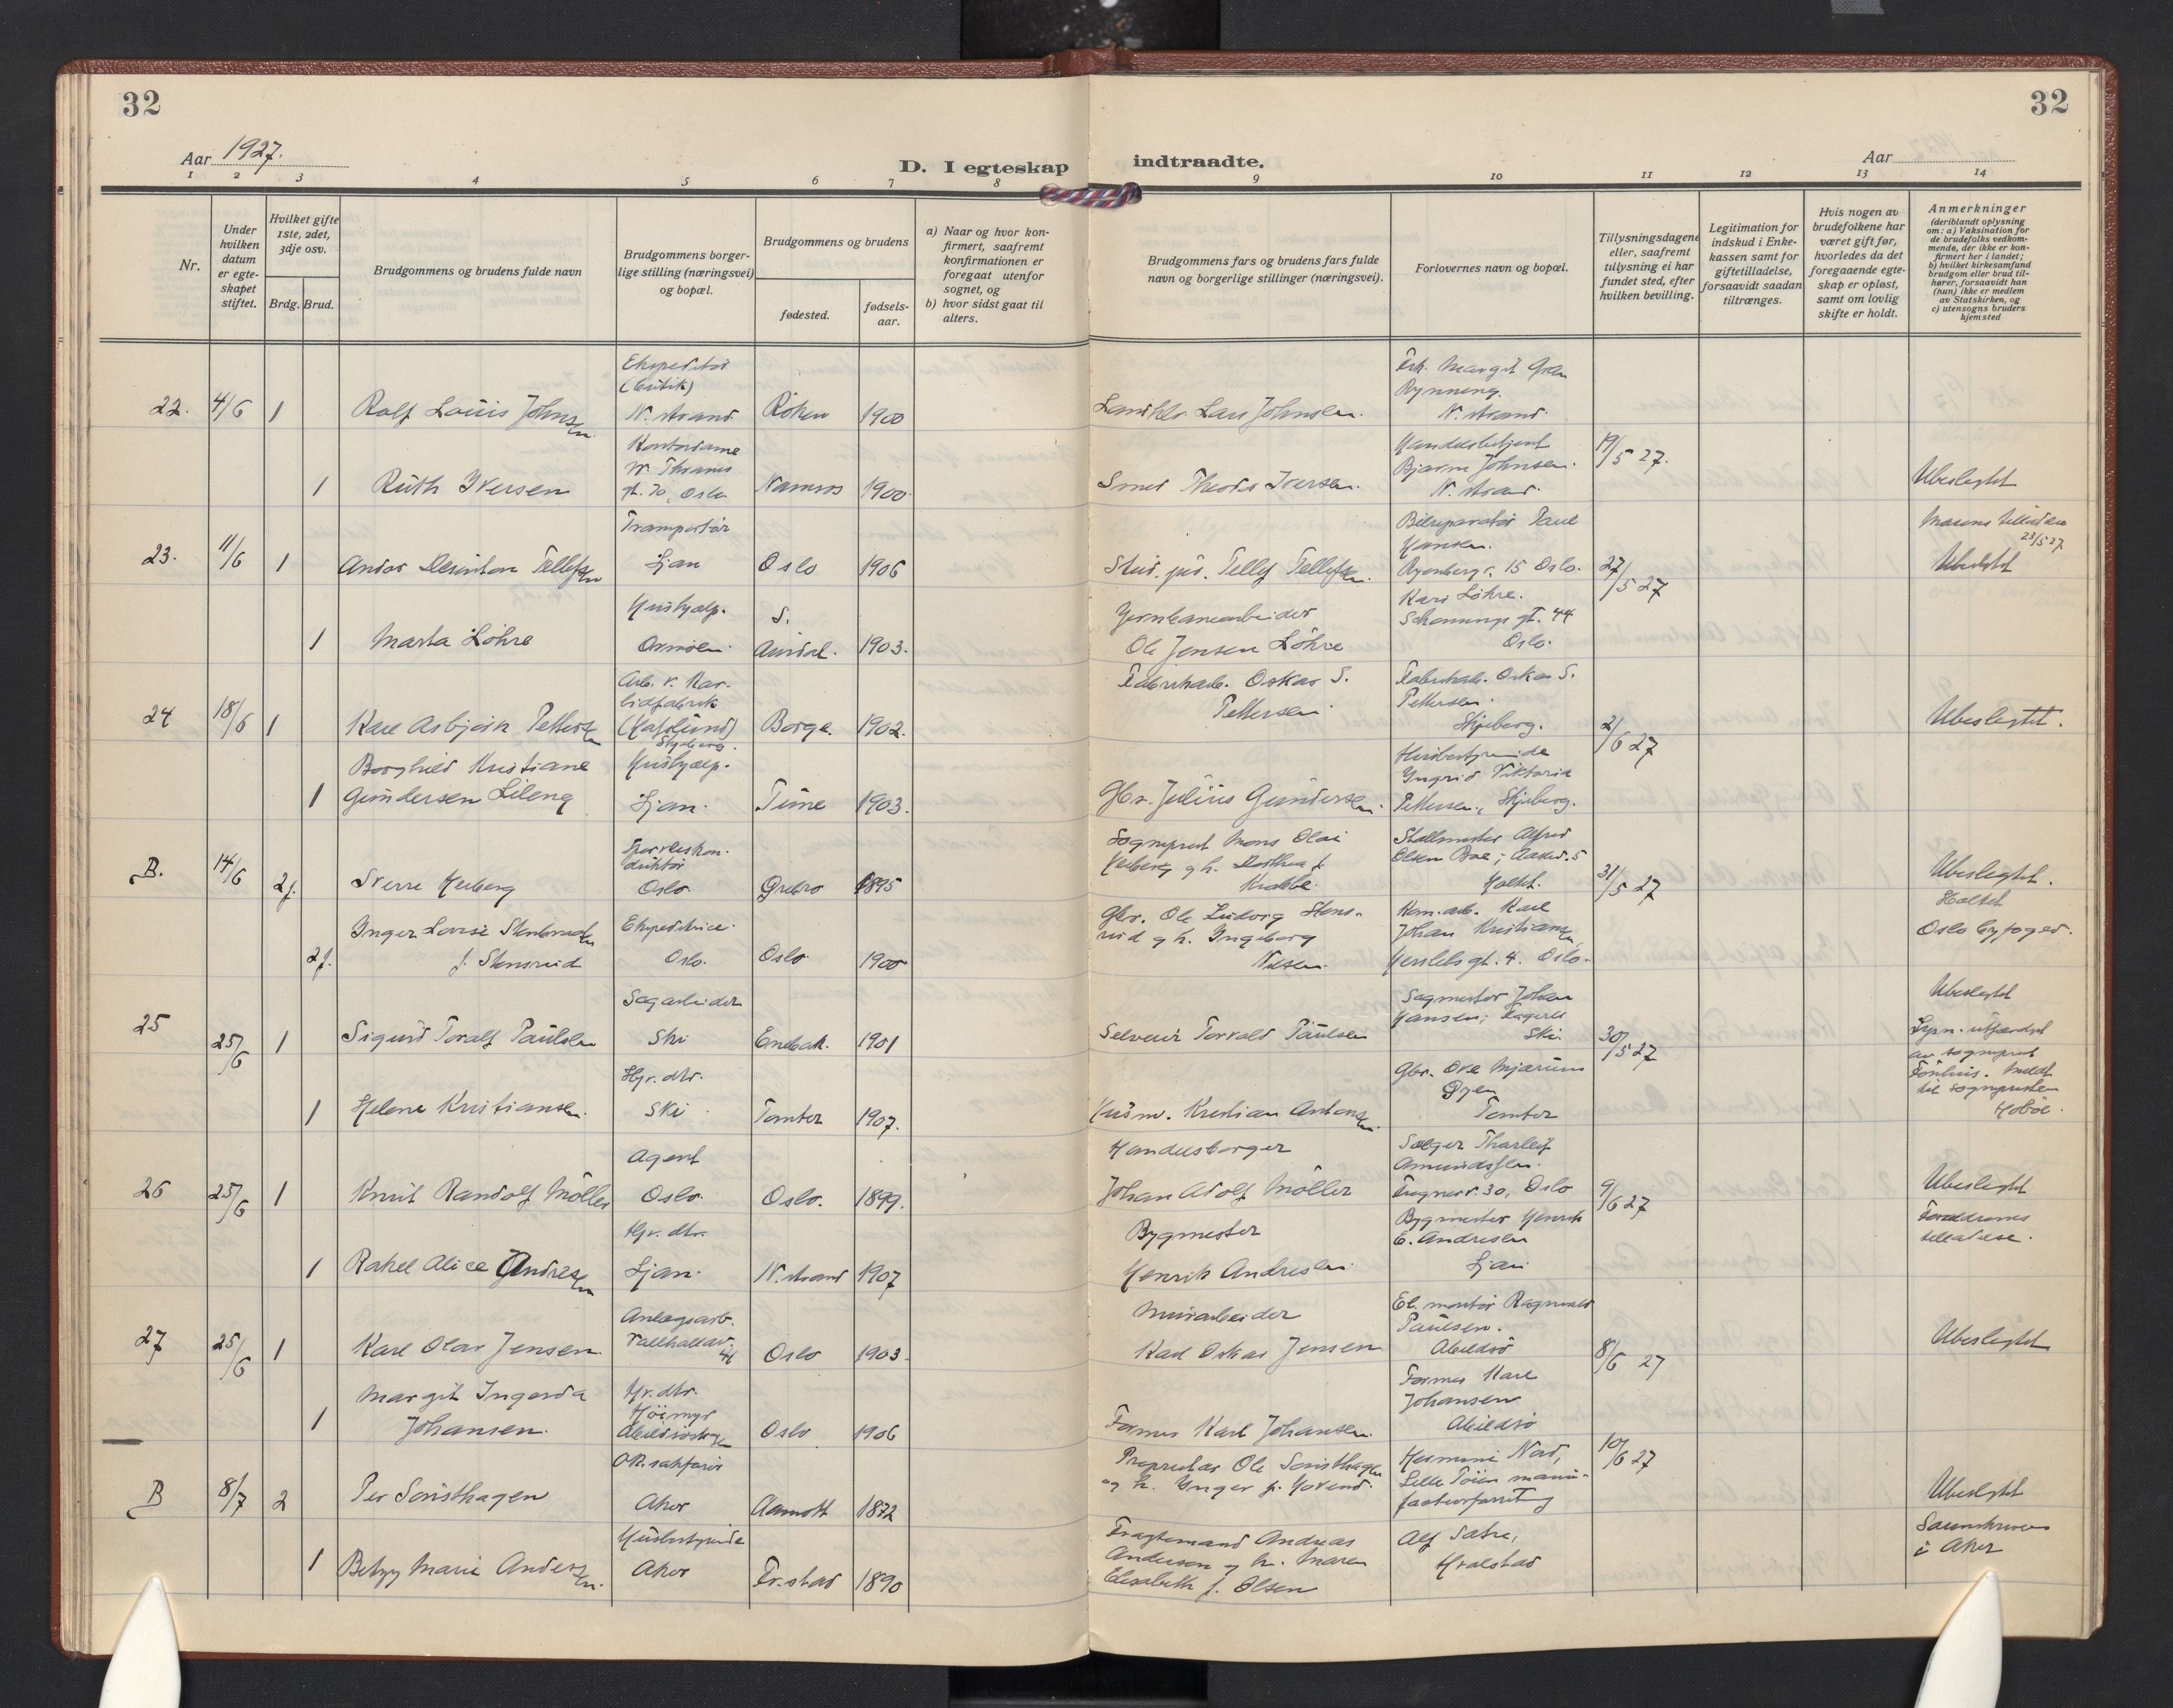 32
32
Aar 1927.
D. I egteskap indtraadte.
Aar
1 2 3 4 5 6 7 8 9 10 11 12 13 14
Nr.
Under
hvilken
datum
er egte-
skapet
stiftet.
Hvilket gifte
1ste, 2det,
3dje osv.
Brdg. Brud.
Brudgommens og brudens fulde navn
Brudgommens borger-
lige stilling (næringsvei)
og bopæl.
Brudgommens og brudens
fødested.
fødsels-
aar.
a) Naar og hvor kon-
firmert, saafremt
konfirmationen er
foregaat utenfor
sognet, og
b) hvor sidst gaat til
alters.
Brudgommens fars og brudens fars fulde
navn og borgerlige stillinger (næringsvei).
Forlovernes navn og bopæl.
Tillysningsdagene
eller, saafremt
tillysning ei har
fundet sted, efter
hvilken bevilling.
Legitimation for
indskud i Enke-
kassen samt for
giftetilladelse,
forsaavidt saadan
tiltrænges.
Hvis nogen av
brudefolkene har
været gift før,
hvorledes da det
foregaaende egte-
skap er opløst,
samt om lovlig
skifte er holdt.
Anmerkninger
(deriblandt oplysning
om: a) Vaksination for
de brudefolks vedkom-
mende, der ikke er kon-
firmert her i landet;
b) hvilket kirkesamfund
brudgom eller brud til-
hører, forsaavidt han
(hun) ikke er medlem
av Statskirken, og
c) utensogns bruders
hjemsted
22. 4/6 1
Rolf Louis Johnsen
N. strand
Röken 1900
Landhr. Lars Johnsen.
Frk. Margit Gran
Rynning.
N. strand.
1 Ruth Iversen
Kontordame
W. Thranes
gt. 70, Oslo
Namsos 1900
Smed Theodor Iversen.
Handelsbetjent
Bjarne Johnsen.
N. strand.
19/5 27.
Ubeslegtet
23. 11/6 1
Tellefsen
Ljan
Oslo 1906
Stud. jur. Tellef Tellefsen.
Bilreparatør Paul
Hansen.
Ryenbergv. 15 Oslo.
27/5 27
23/5 27
Ubeslegtet
1 Marta Löhre
Hushjælp.
S.
Aurdal. 1903.
Jernbanearbeider
Ole Jensen Löhre
Kari Löhre.
gt. 44
Oslo.
24 18/6 1
Karl Asbjörn Pettersen
Arb. v. Kar-
bidfabrik
(Hafslund)
Skjeberg.
Borge. 1902.
Fabrikarb. Oskar S.
Pettersen.
Fabrikarb. Oskar S.
Pettersen.
Skjeberg.
2/6 27
Ubeslegtet.
Borghild Kristiane
1 Gundersen Lileng
Hushjælp.
Ljan.
Tune 1903.
Gbr. Julius Gundersen.
Husbestyrerinde
Ingrid Viktoria
Pettersen, Skjeberg.
B. 14/6 2g.
Sverre Heiberg
Sporveiskon-
duktör
Oslo
1895
Sogneprest Mons Olai
Heiberg g h. Dorthea f.
Krabbe.
Stallmester Alfred
Olsen
31/5 27
Ubeslegtet.
Oslo byfoged.
2g.
f. Stensrud
Ekspeditrice.
Oslo.
Oslo 1900
Gbr. Ole Ludvig Stens-
rud g h. Ingeborg
Nilsen.
Kom.arb. Karl
Johan Kristiansen
Herslebs gt. 4. Oslo.
25 25/6 1
Sigurd Toralf Paulsen
Sagarbeider
Ski
Enebak. 1901
Torvald Paulsen
Sagmester Johan
Hansen,
Ski.
30/5 27
Ubeslegtet
Lysn. utfærdet
av sogneprest
Meldt
til sognepresten
Hobøl.
1 Helene Kristiansen.
Hj. dtr.
Ski
Tomter 1907.
Husm. Kristian Antonsen.
Gbr. Ove Mjærum
Tomter
26 25/6 1
Knut Randolf Möller
Agent
Oslo.
Oslo. 1899.
Handelsborger
Johan Adolf Möller
Sælger Tharleif
Amundsen.
Frognerv. 30, Oslo
9/6 27
Ubeslegtet
Forældrenes
tilladelse.
1 Rakel Alice Andresen
Hj. dtr.
Ljan.
N. strand 1907
Bygmester
Henrik Andresen.
Bygmester Henrik
E. Andresen
Ljan
27 25/6 1
Karl Olav Jensen.
Anlægsarb.
Vallhallav.
Oslo 1903.
Murarbeider
Karl Oskar Jensen
El. montør Ragnvald
Paulsen.
Abildsø
8/6 27
Ubeslegtet
Margit Ingerda
1 Johansen.
Hj. dtr.
Höimyr
Oslo 1906
Former Karl Johansen.
Former Karl
Johansen
Abildsö
B 8/7 2
Per Soristhagen
OR.sakfører
Aker
Aamott 1872
Proprietær Ole Soristhagen
og h. Inger f.
Hermine Nord,
Lille Töien manu-
10/6 27
Ubeslegtet
i Aker
1 Betzy Marie Andersen.
Husbestyrerinde
Aker
Fr.stad 1890
Fragtemand Andreas
Andersen g h. Maren
Elisabeth f. Olsen
Alf Sætre,